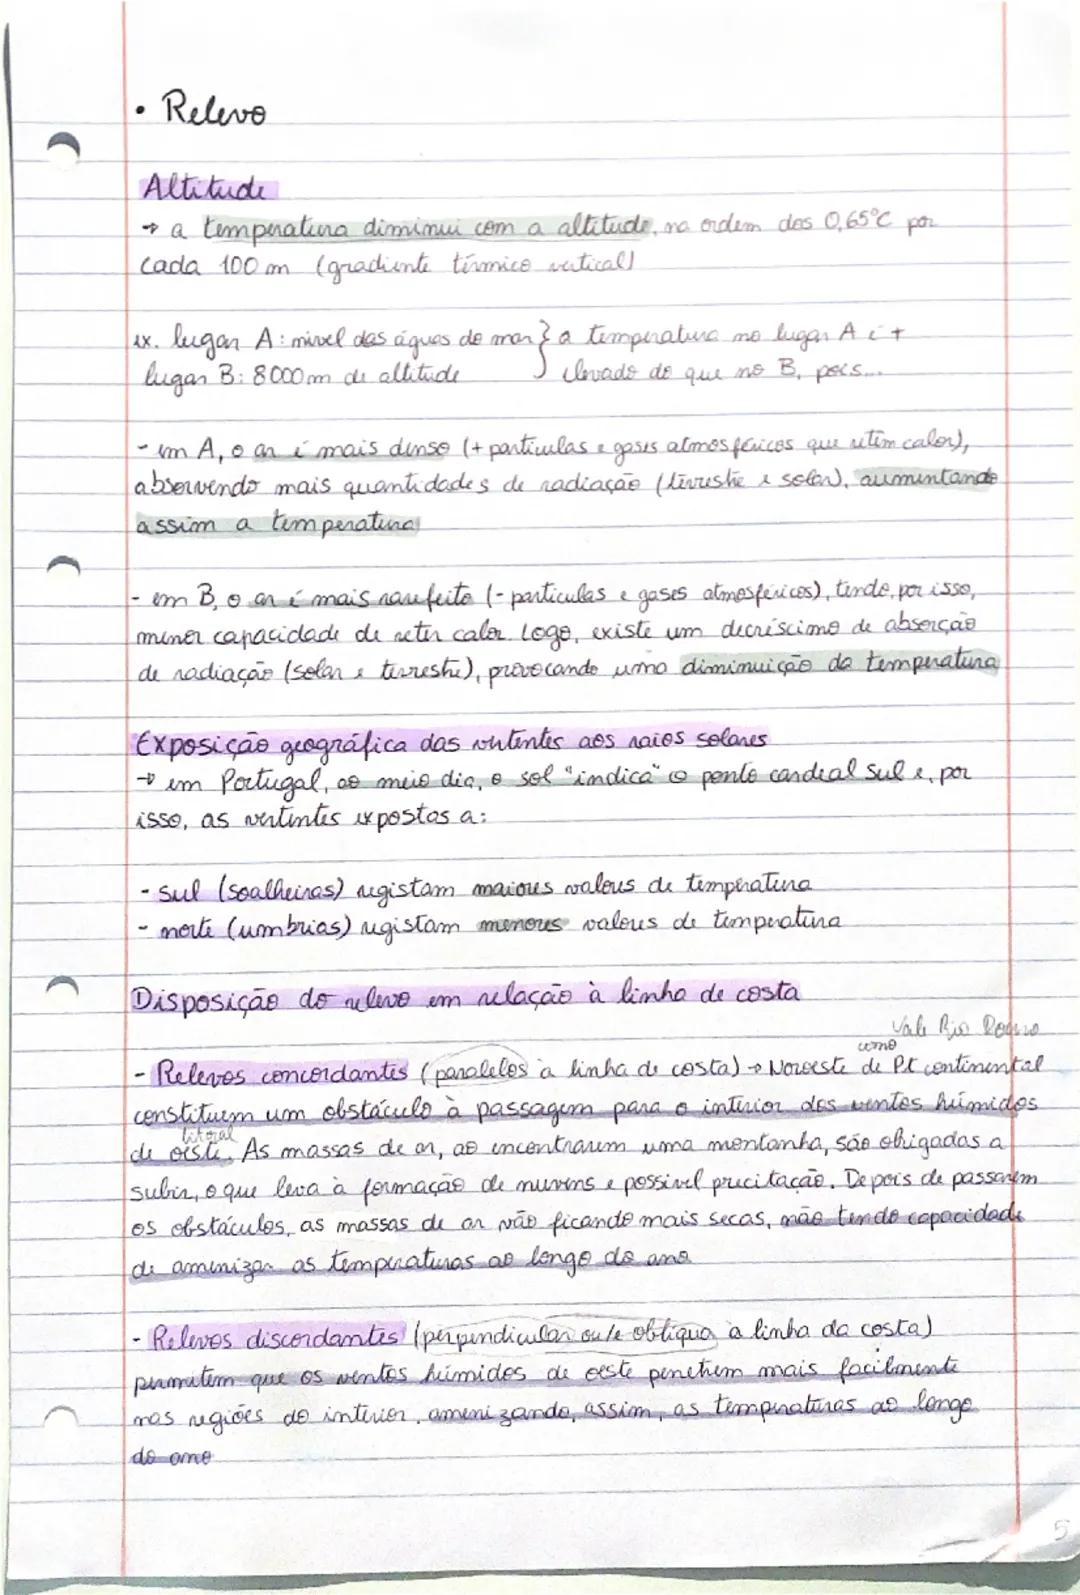 • Relevo
Altitude
→ a temperatura diminui com a altitude, na ordem dos 0,65°C por
cada 100 m (gradiente térmico vertical)
ex. lugar A: nível das águas do mar } a temperatura no lugar A é +
lugar B: 8000m de altitude } elevado do que no B, pois...
- em A, o ar é mais denso (+ partículas e gases atmosféricos que retêm calor),
absorvendo mais quantidades de radiação (terrestre e solar), aumentando
assim a temperatura
- em B, o ar é mais rarefeito (- partículas e gases atmosféricos), tendo, por isso,
menor capacidade de reter calor. Logo, existe um decréscimo de absorção
de radiação (solar e terrestre), provocando uma diminuição da temperatura
Exposição geográfica das vertentes aos raios solares
→ em Portugal, ao meio dia, o sol "indica" o ponto cardeal Sul e, por
isso, as vertentes expostas a:
- sul (soalheiras) registam maiores valores de temperatura
- norte (umbrias) registam menores valores de temperatura
Disposição do relevo em relação à linha de costa
Vale Rio Douro
como
- Relevos concordantes (paralelos à linha de costa) → Noroeste de Pt continental
constituem um obstáculo à passagem para o interior dos ventos húmidos
litoral
de oeste. As massas de ar, ao encontrarem uma montanha, são obrigadas a
subir, o que leva à formação de nuvens e possível precitação. Depois de passarem
os obstáculos, as massas de ar vão ficando mais secas, não tendo capacidade
de amenizar as temperaturas ao longo do ano
- Relevos discordantes (perpendicular ou/e oblíqua à linha da costa)
permitem que os ventos húmidos de oeste penetrem mais facilmente
nas regiões do interior, amenizando, assim, as temperaturas ao longo
do ano
5